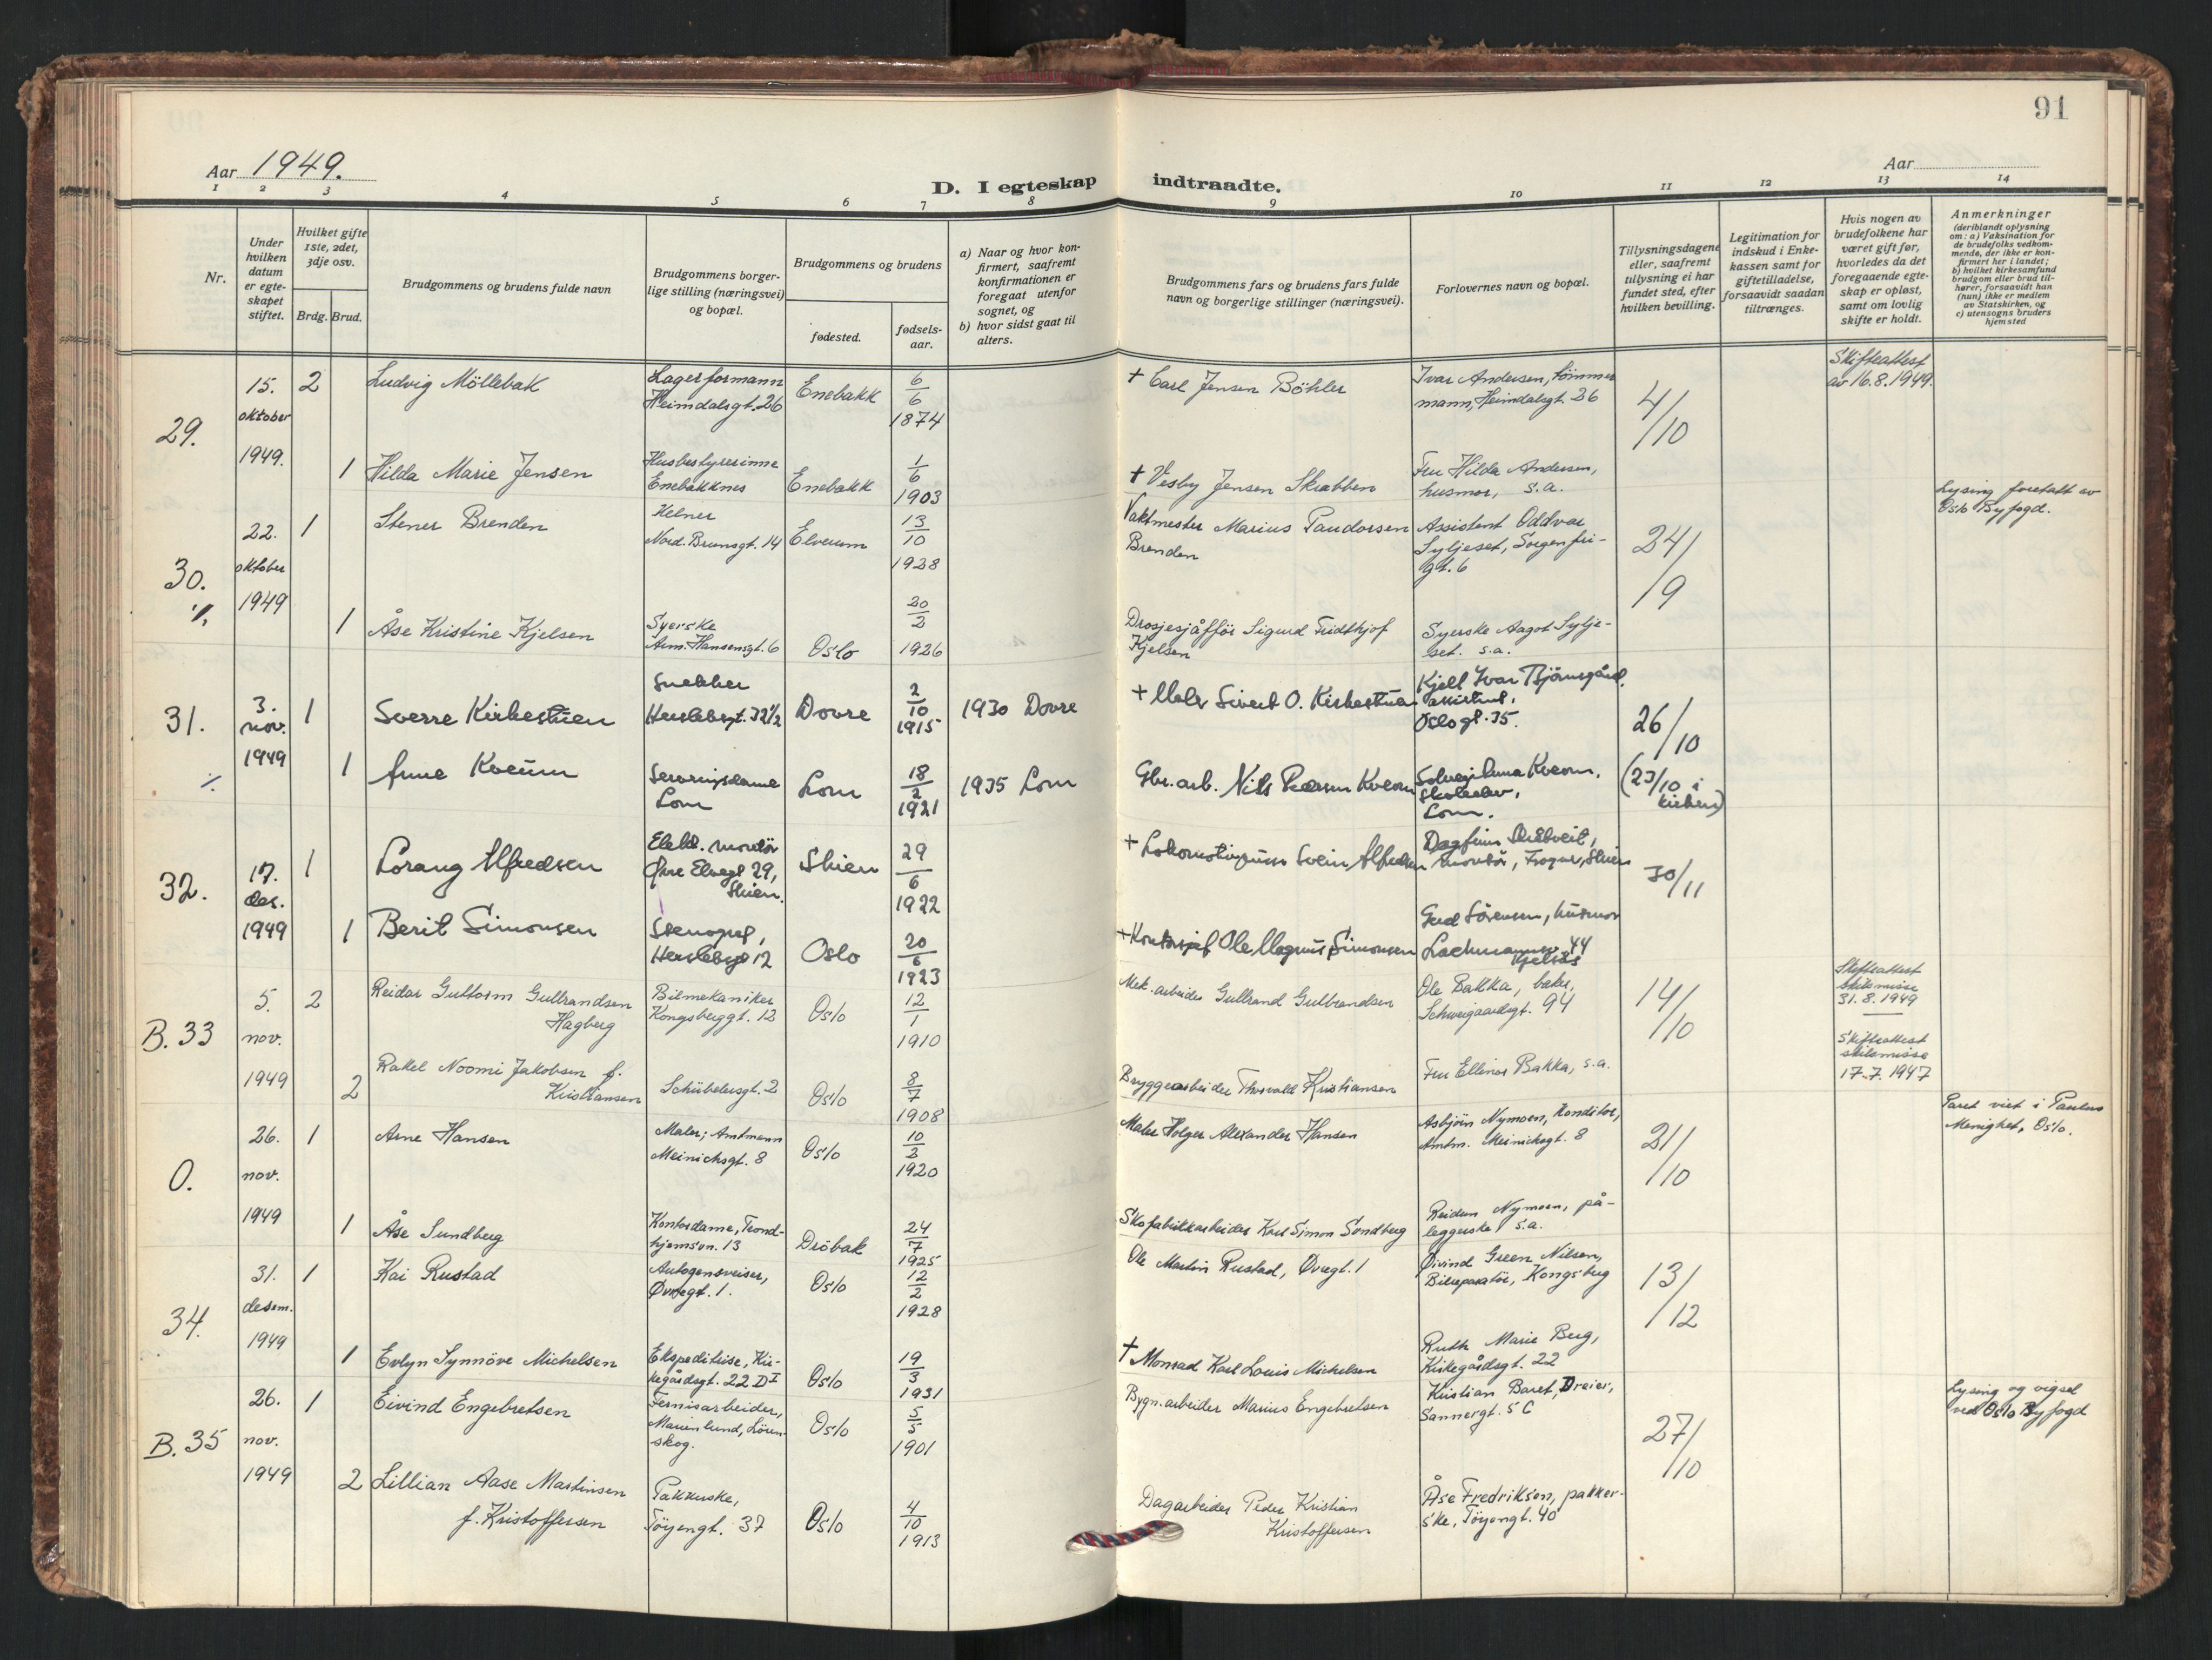 91
Aar 1949.
Aar
D. I egteskap indtraadte.
1 2 3 4 5 6 7 8 9 10 11 12 13 14
Nr.
Under
hvilken
datum
er egte-
skapet
stiftet.
Hvilket gifte
1ste, 2det,
3dje osv.
Brdg. Brud.
Brudgommens og brudens fulde navn
Brudgommens borger-
lige stilling (næringsvei)
og bopæl.
Brudgommens og brudens
fødested.
fødsels-
aar.
a) Naar og hvor kon-
firmert, saafremt
konfirmationen er
foregaat utenfor
sognet, og
b) hvor sidst gaat til
alters.
Brudgommens fars og brudens fars fulde
navn og borgerlige stillinger (næringsvei).
Forlovernes navn og bopæl.
Tillysningsdagene
eller, saafremt
tillysning ei har
fundet sted, efter
hvilken bevilling.
Legitimation for
indskud i Enke-
kassen samt for
giftetilladelse,
forsaavidt saadan
tiltrænges.
Hvis nogen av
brudefolkene har
været gift før,
hvorledes da det
foregaaende egte-
skap er opløst,
samt om lovlig
skifte er holdt.
Anmerkninger
(deriblandt oplysning
om: a) Vaksination for
de brudefolks vedkom-
mende, der ikke er kon-
firmert her i landet;
b) hvilket kirkesamfund
brudgom eller brud til-
hører, forsaavidt han
(hun) ikke er medlem
av Statskirken, og
c) utensogns bruders
hjemsted
29.
15.
oktober
1949.
2
Ludvig Möllebak
Lagerformann
Heimdalsgt. 26
Enebakk
6/6
1874
+ Carl Jensen Böhler
Ivar Andersen, tömmer
mann, Heimdalsgt. 26
4/10
Skifteattest
av 16.8.1949.
1
Hilda Marie Jensen
Husbestyrerinne
Enebakknes
Enebakk
1/6
1903
+ Vesby Jensen Skrabben
Fru Hilda Andersen,
husmor, s.a.
Lysing foretatt av
Oslo Byfogd.
30.
22.
oktober
1949
1
Stener Brenden
Kelner
Nord. Brunsgt. 14
Elverum
13/10
1928
Vaktmester Marius Paudorsen
Brenden
Assistent Oddvar
Syljeset, Sorgenfri-
gt. 6
24/9
1
Åse Kristine Kjelsen
Syerske
Arm. Hansensgt. 6
Oslo
20/2
1926
Drosjesjåfför Sigurd Fridthjof
Kjelsen
Syerske Aagot Sylje-
set. s.a.
31.
3.
nov.
1949
1
Sverre Kirkestuen
Snekker
Herslebsgt. 32½
Dovre
2/10
1915
1930 Dovre
+ Maler Sivert O. Kirkestuen
Kjell Ivar Bjørnsgård,
assistent,
Oslogt. 35.
26/10
1
Anne Kveum
Serveringsdame
Lom
Lom
18/2
1921
1935 Lom
Gbr. arb. Nils Pedersen Kveum
Solveig Anna Kveum,
skoleelev,
Lom.
(23/10 i
kirken)
32.
17.
des.
1949
1
Lorang Alfredsen
Elektr. montör
Øvre Elvegt 29,
Skien.
Skien
29/6
1922
+ Lokomotivpusser Svein Alfredsen
Dagfinn
montör, Frogner, Skien
30/11
1
Berit Simonsen
Stenograf,
Herslebsgt 12
Oslo
20/6
1923
+ Kontorsjef Ole Magnus Simonsen
Gerd Sörensen, husmor
44
Kjelsås
B. 33
5.
nov.
1949
2
Reidar Guttorm Gulbrandsen
Hagberg
Bilmekaniker
Kongsberggt. 12
Oslo
12/1
1910
Mek. arbeider Gulbrand Gulbrandsen
Ole Bakka, baker,
Schweigaardsgt. 94
14/10
Skifteattest
Skilsmisse
31.8.1949
2
Rakel Noomi Jakobsen f.
Kristiansen
Schübelersgt. 2
Oslo
8/7
1908
Bryggearbeider Thorvald Kristiansen
Fru Ellinor Bakka, s.a.
Skifteattest
skilsmisse
17.7.1947
0.
26.
nov.
1949
1
Arne Hansen
Maler; Amtmann
Meinichsgt. 8
Oslo
10/2
1920
Maler Holger Alexander Hansen
Asbjörn Nymoen, Konditor,
Amtm. Meinichsgt. 8
21/10
Paret viet i Paulus
Menighet, Oslo.
1
Åse Sundberg
Kontordame, Trond-
hjemsvn. 13
Dröbak
24/7
1925
Skofabrikkarbeider Karl Simon Sundberg
Reidun Nymoen, på-
leggerske s.a.
34.
31.
desem.
1949
1
Kai Rustad
Autogensveiser,
Øvregt. 1.
Oslo
12/2
1928
Ole Martin Rustad, Øvregt. 1
Øivind Green Nilsen,
Bilreparatör, Kongsberg
13/12
1
Evlyn Synnöve Michelsen
Ekspeditrise, Kir-
kegårdsgt. 22 D I
Oslo
19/3
1931
+ Monrad Karl Louis Michelsen
Ruth Marie Berg,
Kirkegårdsgt. 22
B. 35
26.
nov.
1949
1
Eivind Engebretsen
Fernisarbeider,
Marienlund, Lören-
skog.
Oslo
5/5
1901
Bygn. arbeider Marius Engebretsen
Kristian Baret, Dreier,
Sannergt. 5 C
27/10
Lysing og vigsel
ved Oslo Byfogd
2
Lillian Aase Martinsen
f. Kristoffersen
Pakkerske,
Töyengt. 37
Oslo
4/10
1913
Dagarbeider Peder Kristian
Kristoffersen
Åse Fredriksen, pakker-
ske, Töyengt. 40